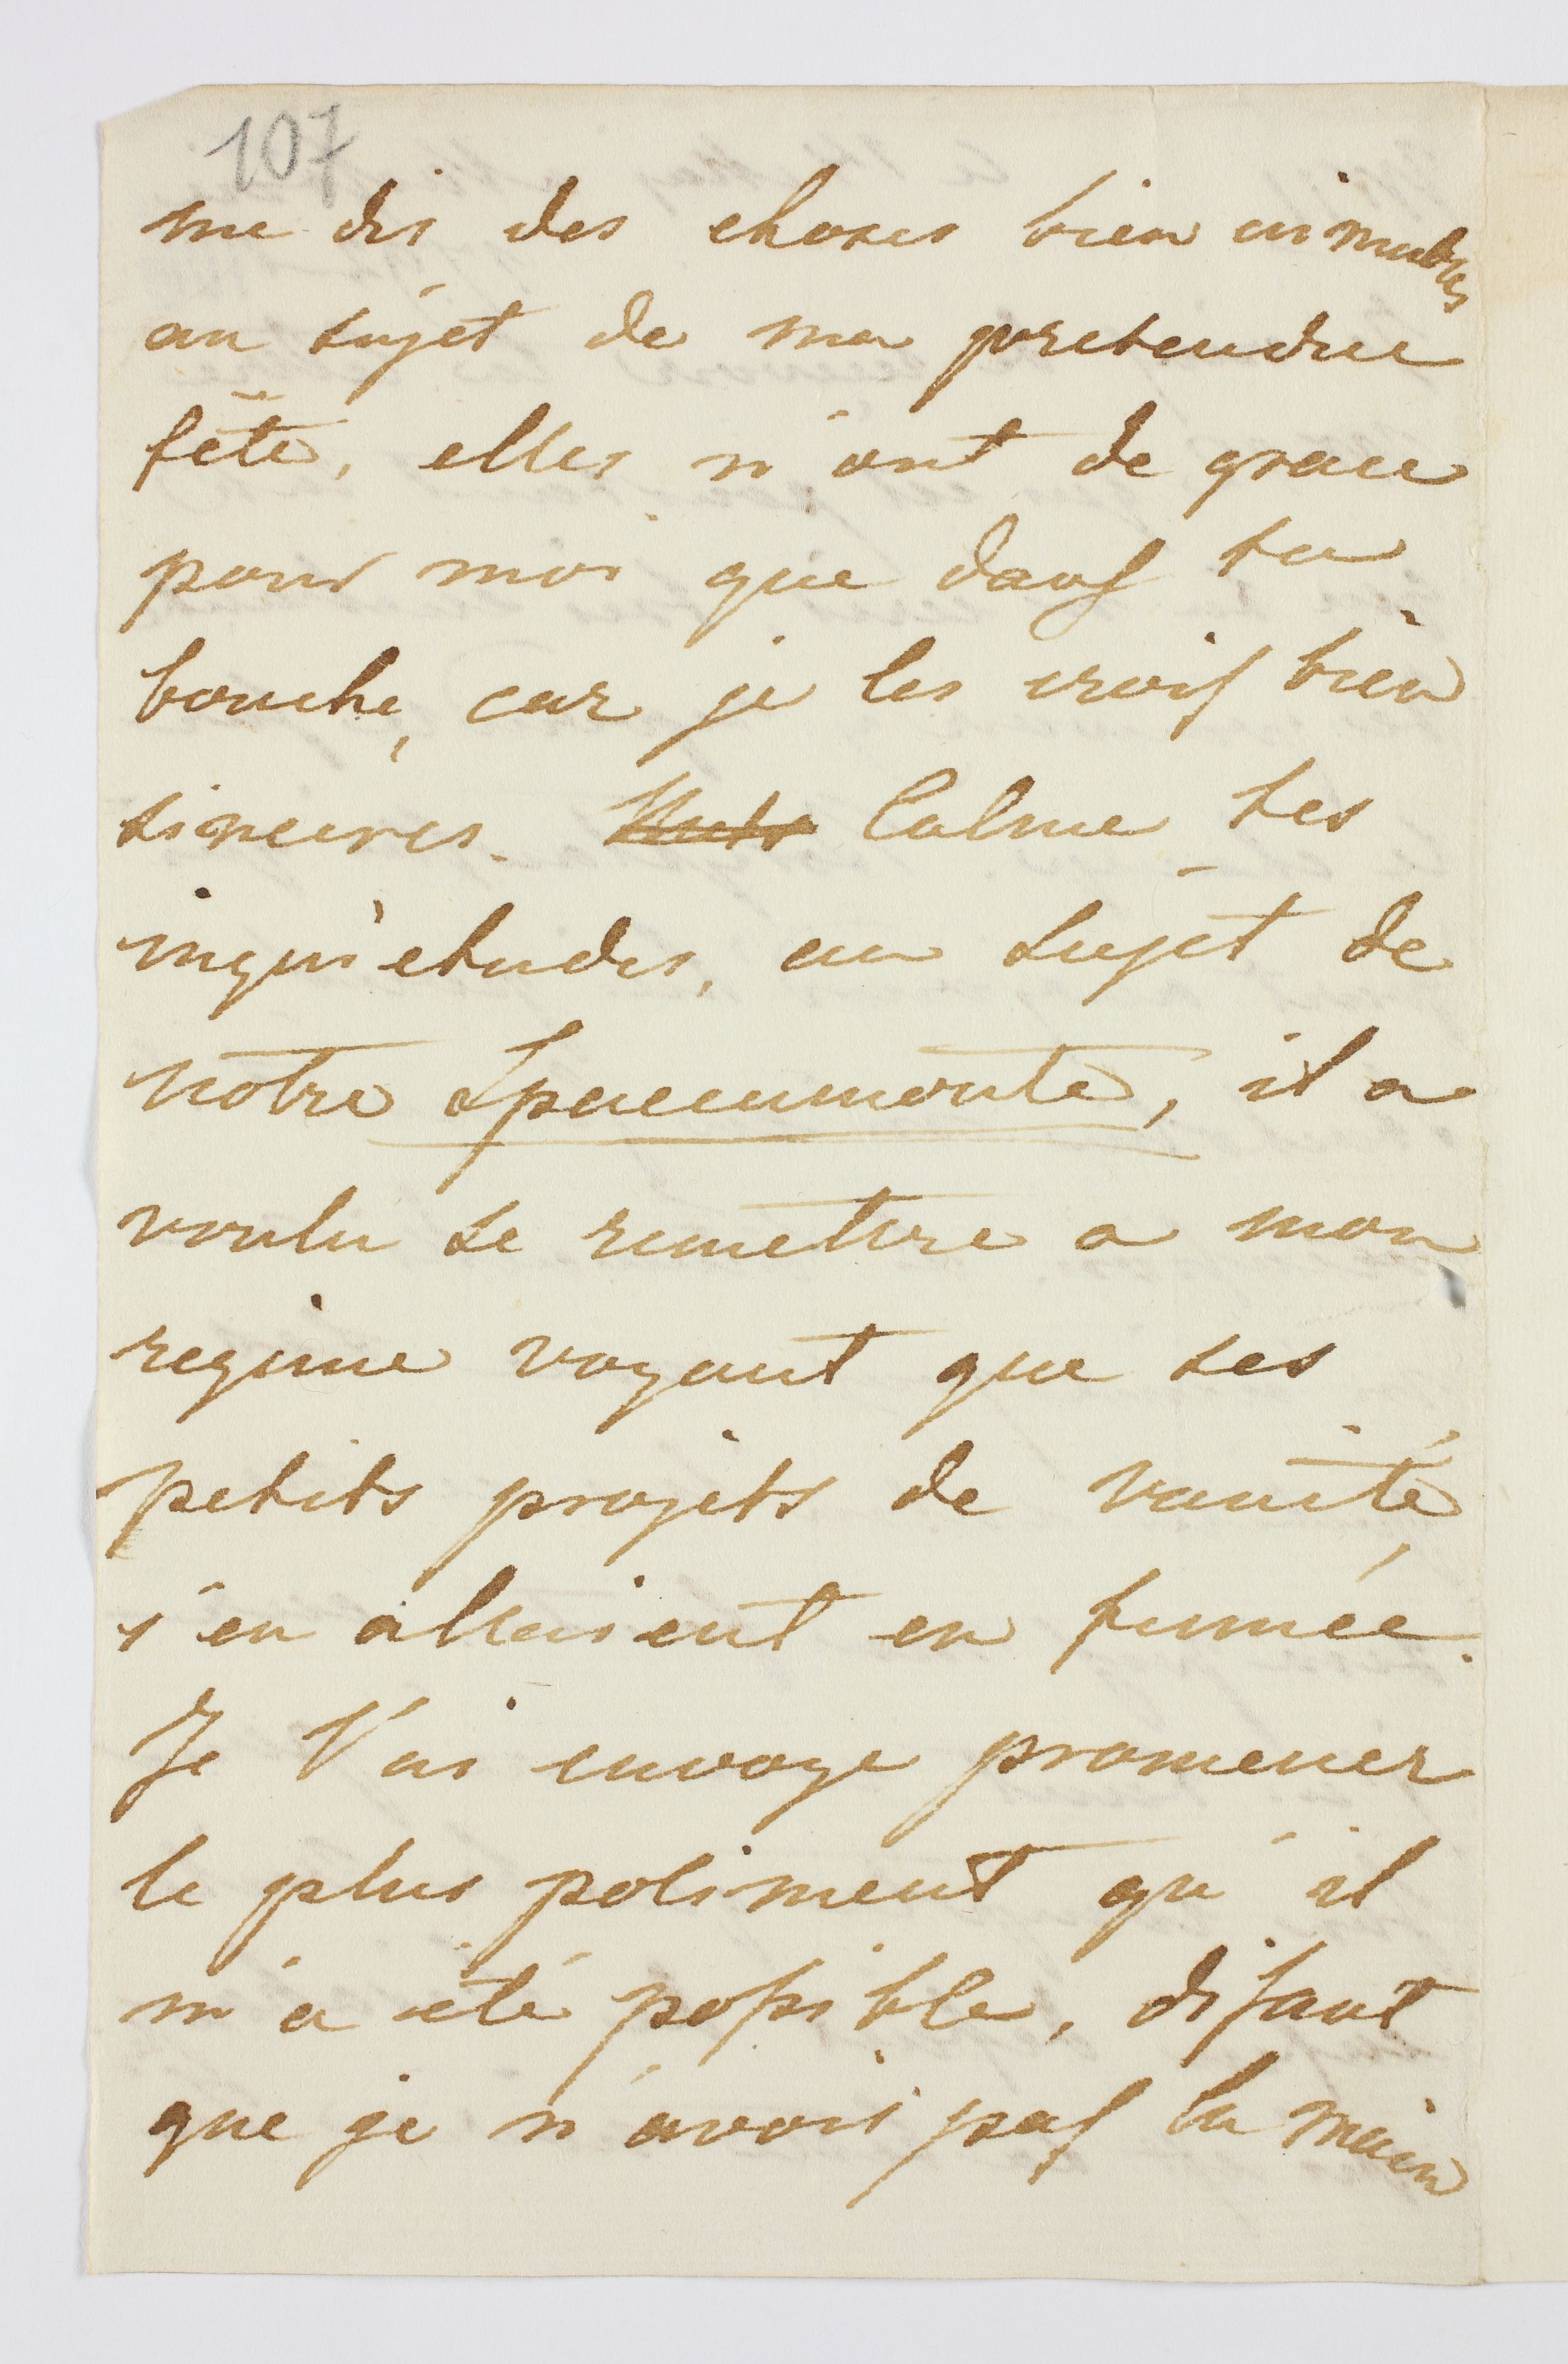 107
me dis des choses bien aimables
au sujet de ma pretendue
fête, elles n'ont de grace
pour moi que dans ta
bouche, car je les crois bien
sinceres. Calme tes
inquietudes, au sujet de
notre Spaccamonte, il a
voulu se remettre a mon
regime voyant que ses
petits projets de vanité
s'en allaient en fumée.
Je l'ai envoye promener
le plus poliment qu'il
m'a été possible, disant
que je n'avois pas la main